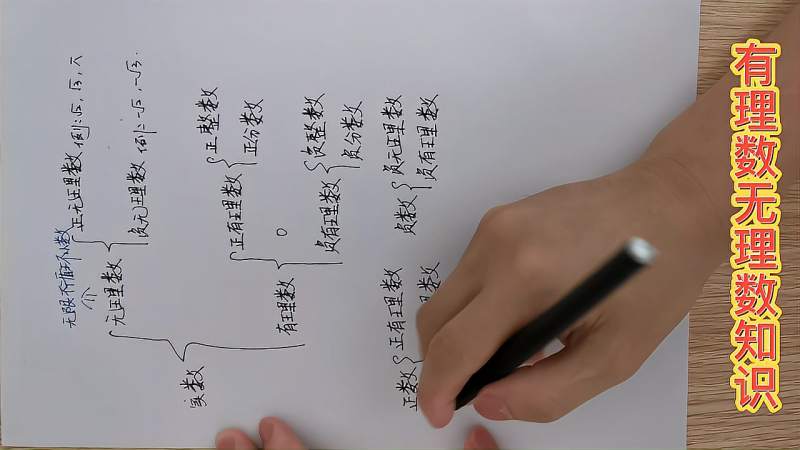 有理数无理数知识
无限不循环小数
正无理数 例:√2, √3, π
无理数
负无理数 例:-√2, -√3.
实数
正整数
正有理数
正分数
0
有理数
负整数
负有理数
负分数
正数
正有理数
理数
负数
负无理数
负有理数